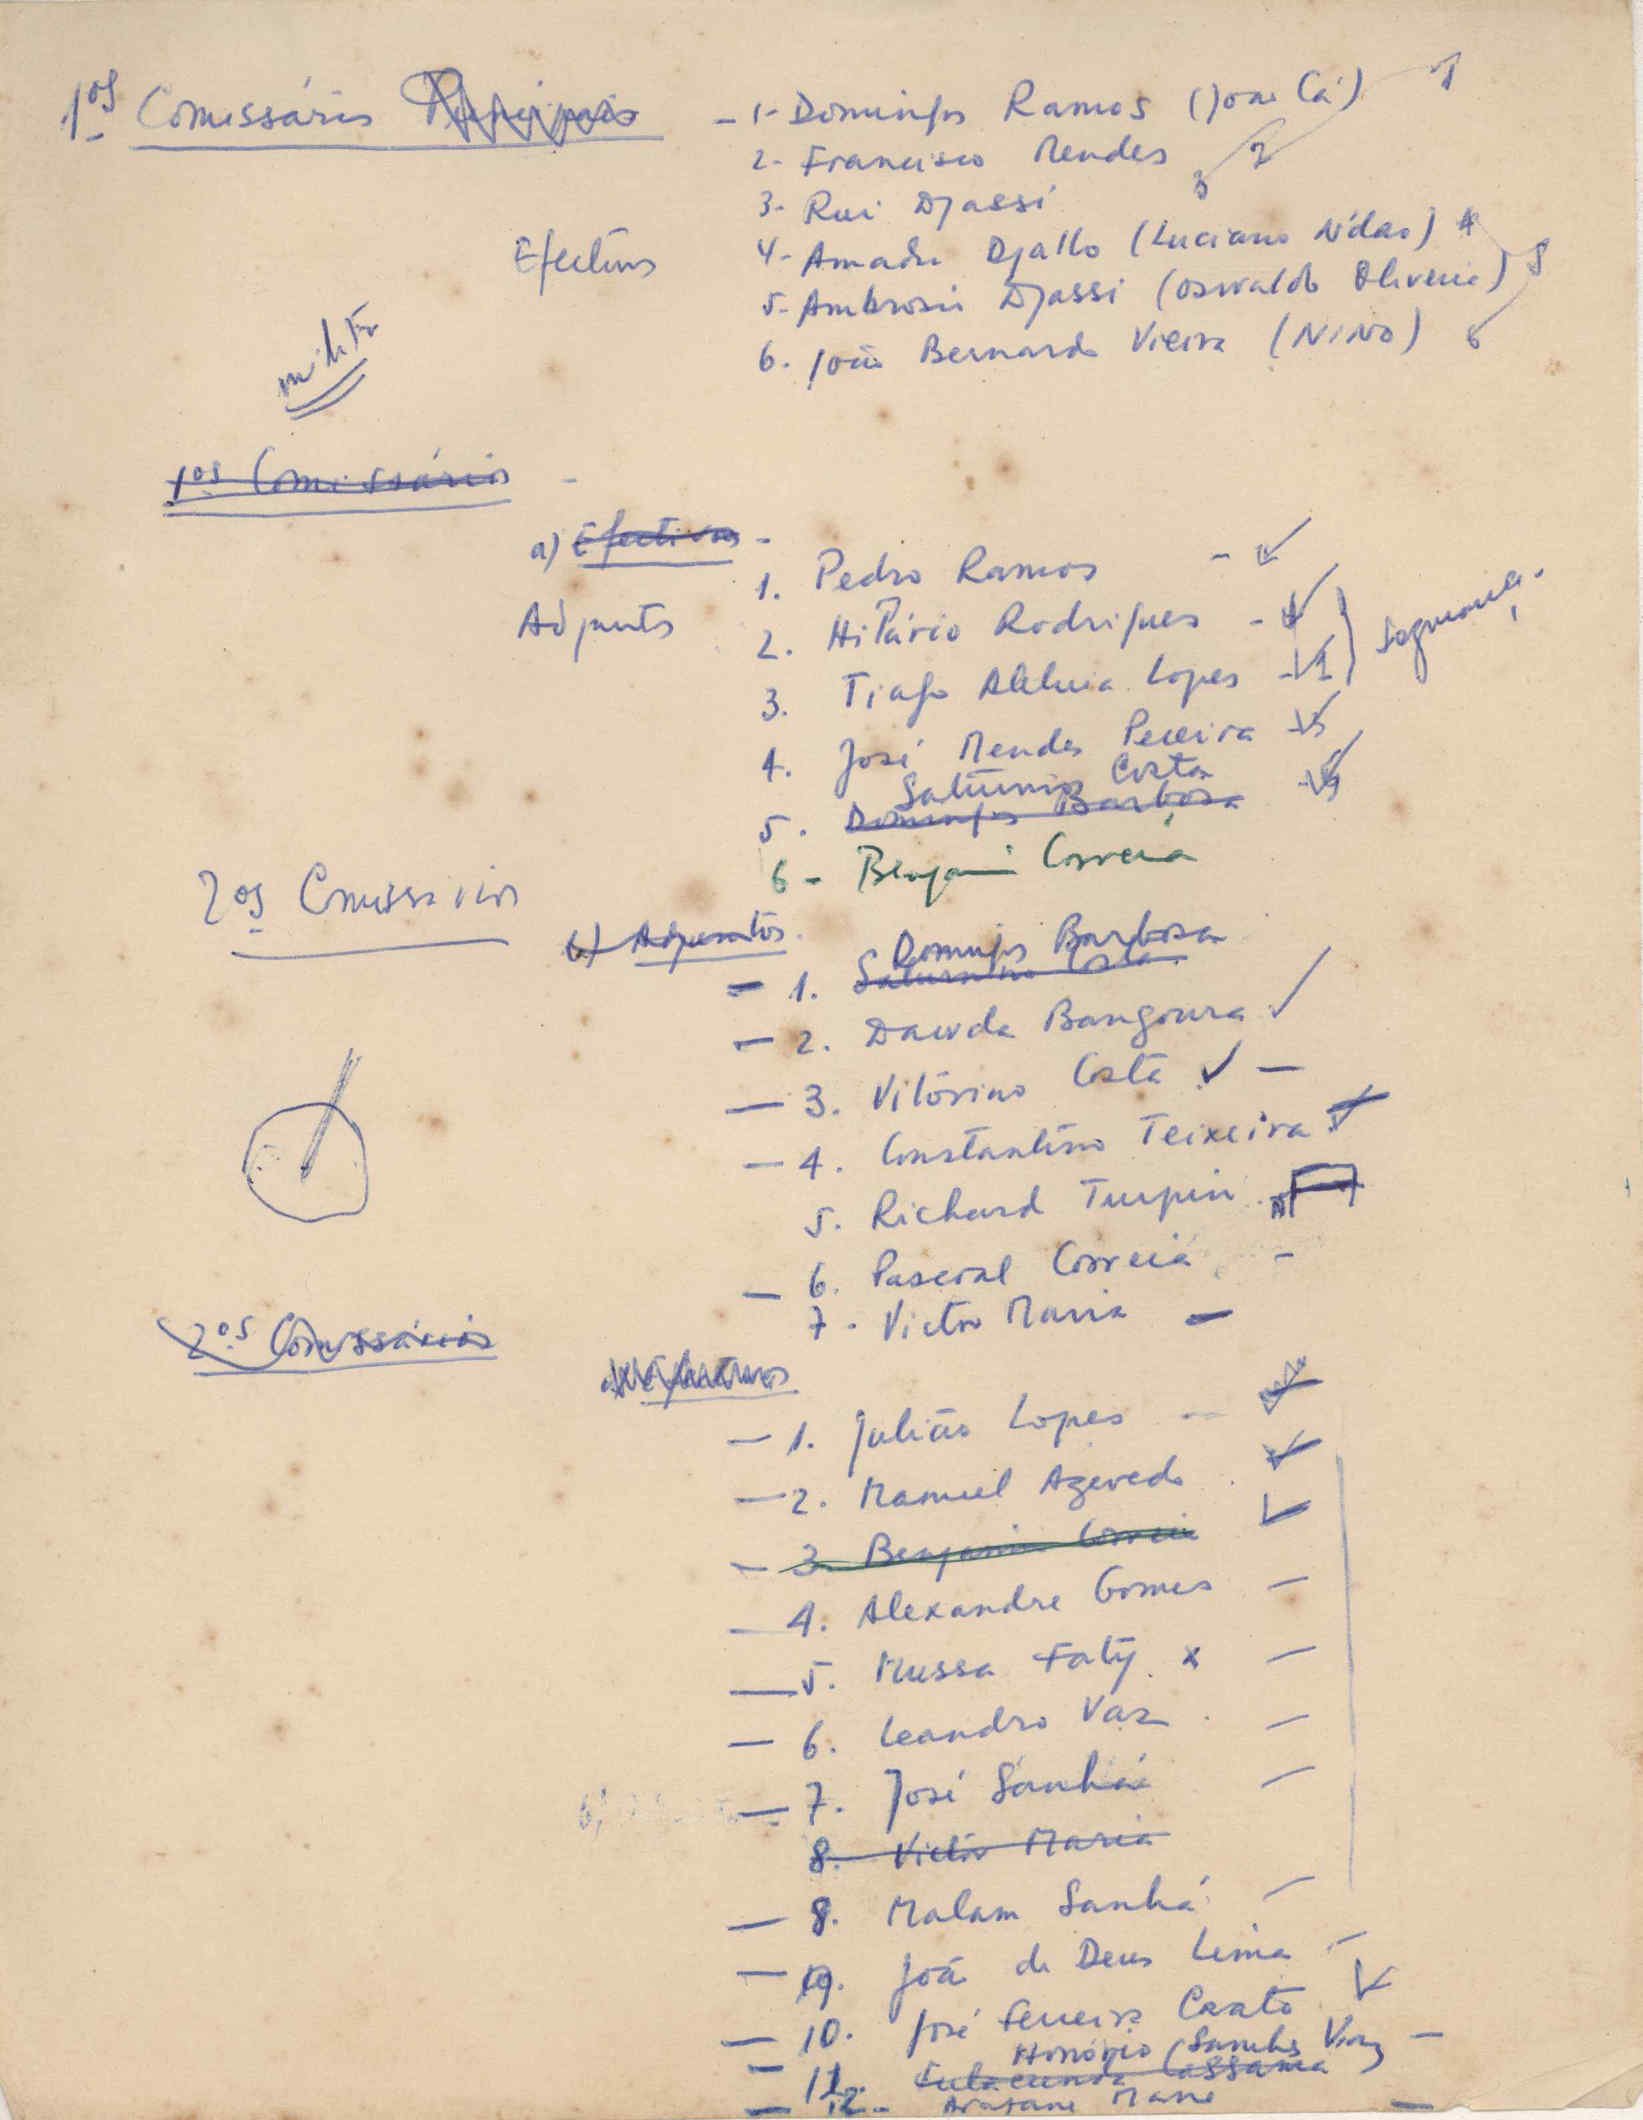 1os Comissários Principais - 1- Domingos Ramos (João Cá) 1
2- Francisco Mendes 2
3- Rui Djassi 3
Efectivos
4- Amadu Djallo (Luciano N'dao) 4
5- Ambrosio Djassi (Osvaldo Oliveira) 5
6. João Bernardo Vieira (NINO) 6
1os Comissários -
a) Efectivos -
1. Pedro Ramos -
Adjuntos
2. Hilário Rodrigues -
Segurança.
3. Tiago Aleluia Lopes -
4. José Mendes Pereira
Saturnino Costa
5. Domingos Barbosa
6- Benjamin Correia
2os Comissários
b) Adjuntos.
Domingos Barbosa
- 1. Saturnino Costa
- 2. Dauda Bangoura
- 3. Vitorino Costa -
- 4. Constantino Teixeira
5. Richard Turpin
- 6. Pascoal Correia -
7. Victor Maria -
2os Comissários
- 1. Julião Lopes -
- 2. Manuel Azevedo
- 3. Benjamin Correia
- 4. Alexandre Gomes -
- 5. Mussa Faty x -
- 6. Leandro Vaz -
- 7. José Sanhá -
8. Victor Maria
- 8. Malam Sanhá -
- 9. João de Deus Lima -
- 10. José Ferreira Crato
Honório Sanches Vaz -
- 11. Fulacunda Cassama
- 12- Arafane Mane -